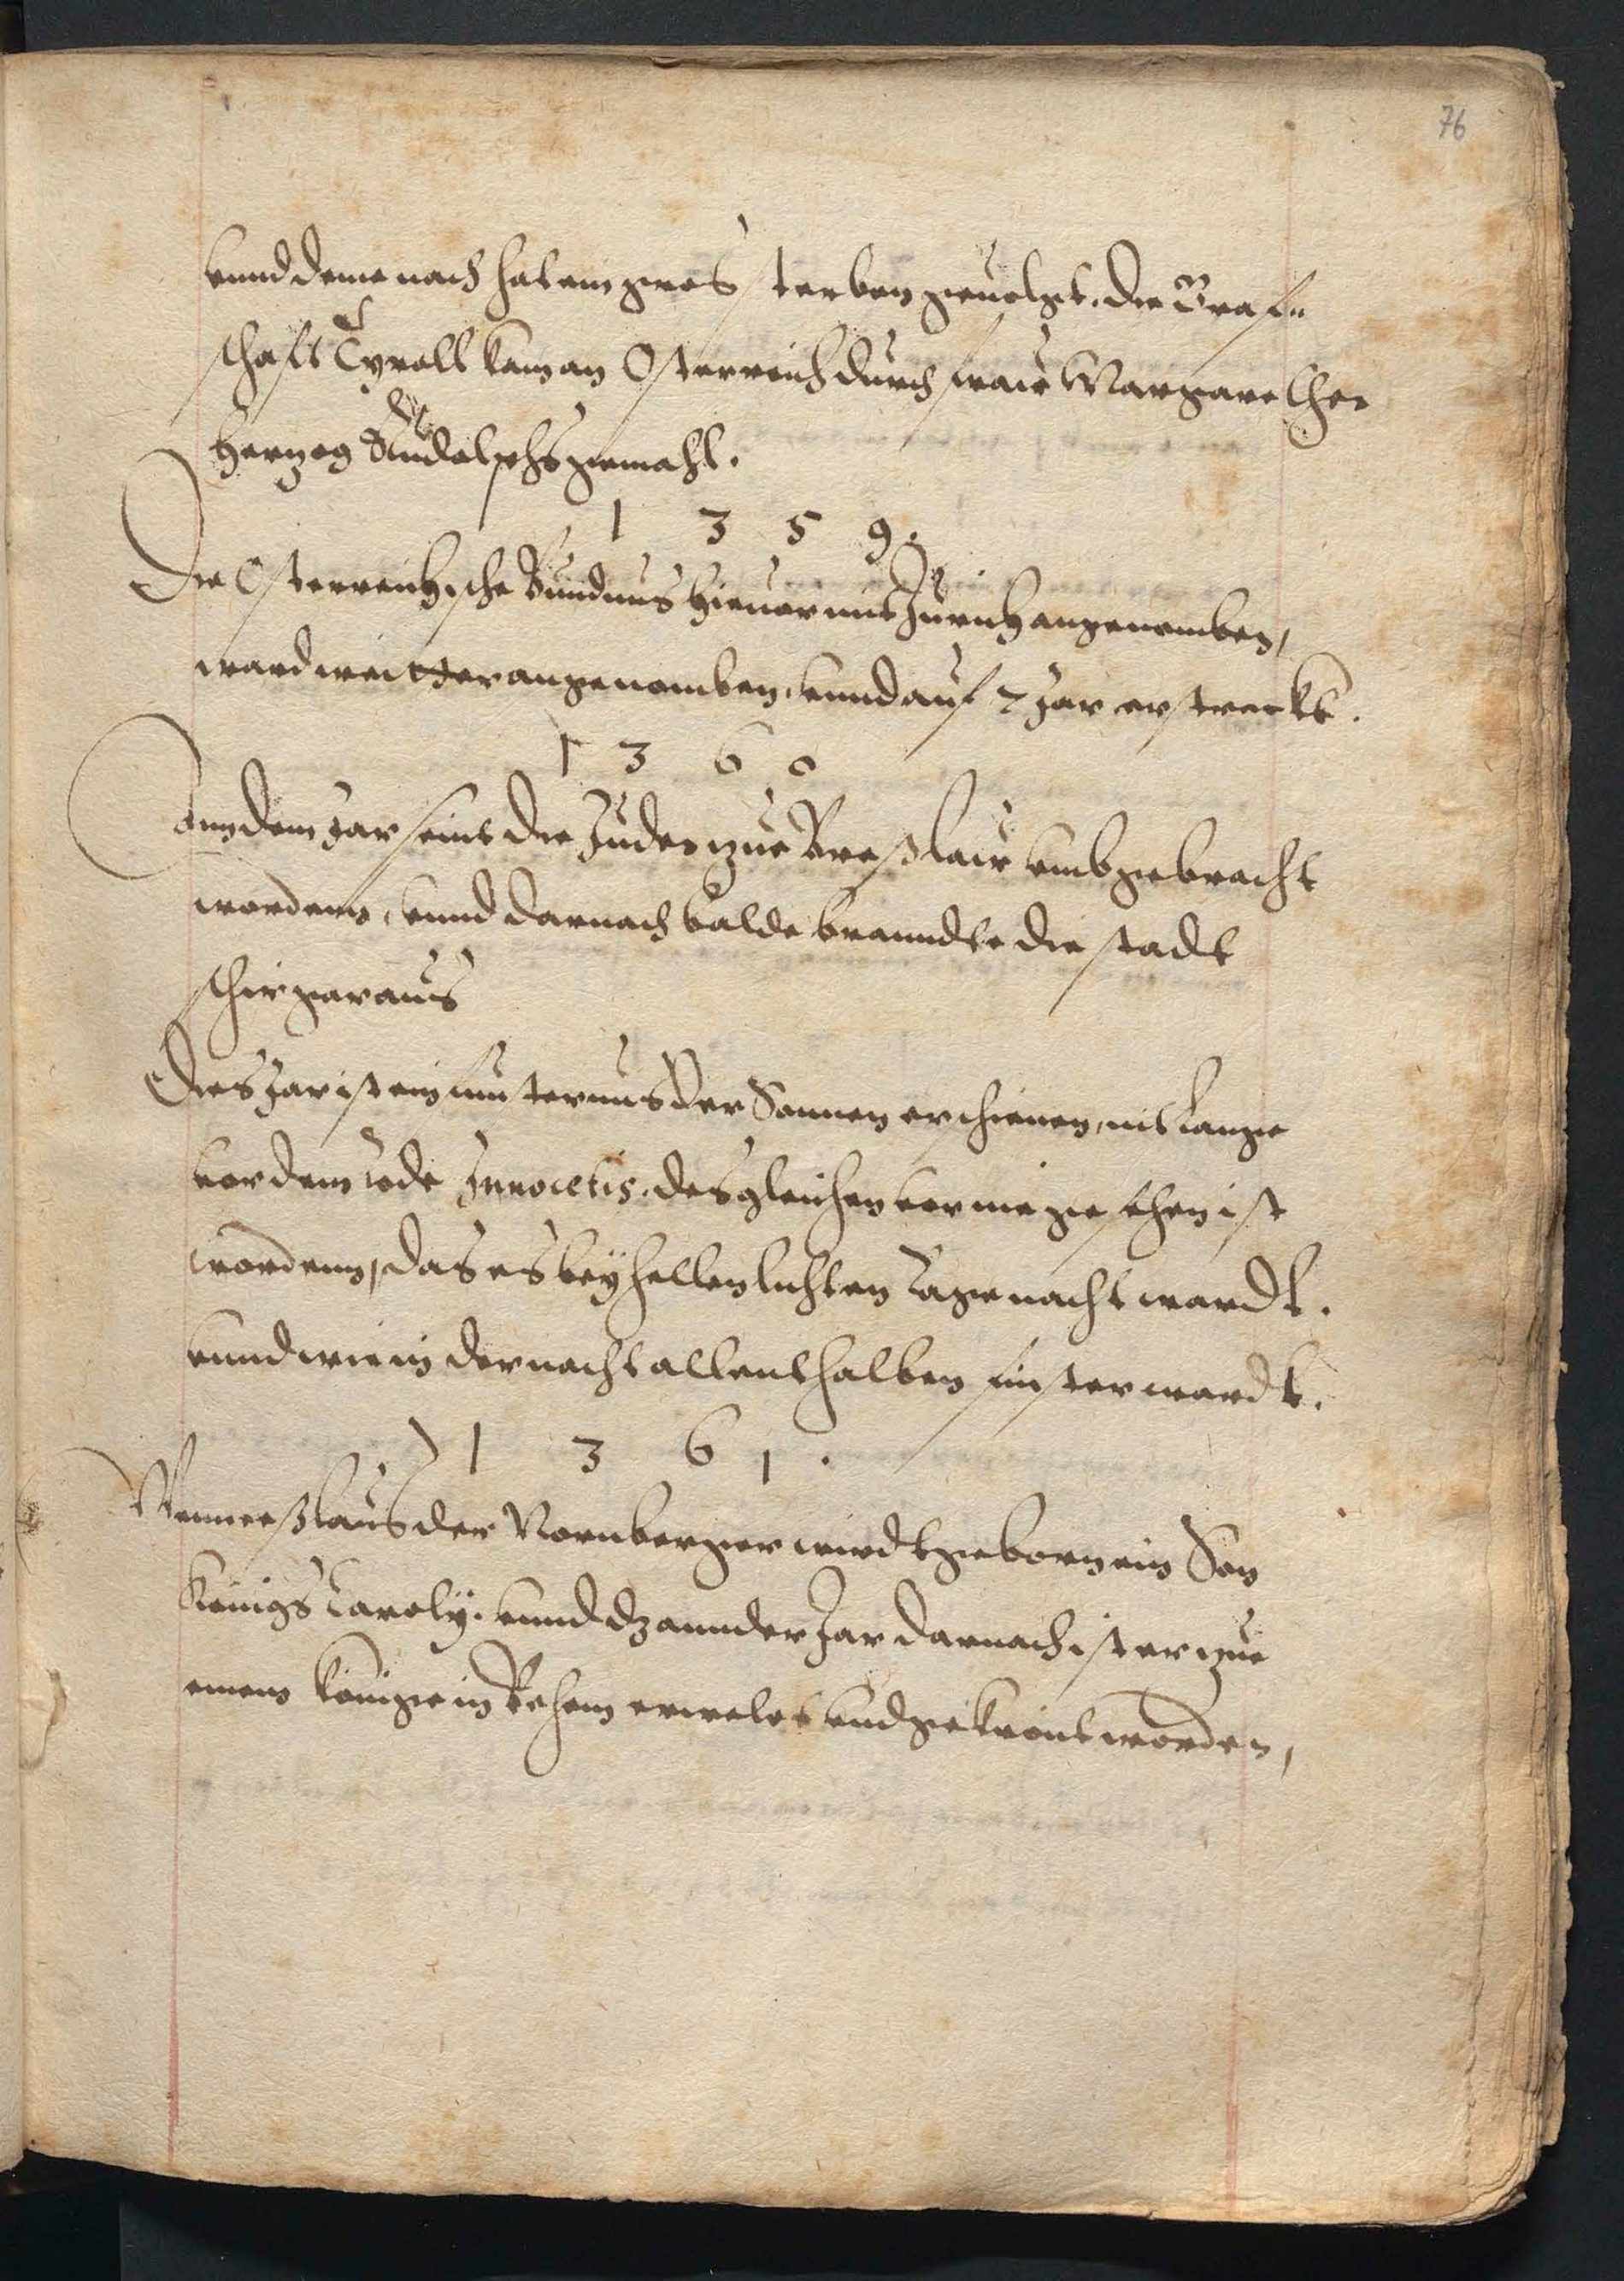 76
vnnd deme nach hat ein gros sterben geuolget. die Graf=
schaft Tyroll kam an Osterreich durch fraw Margarethe
Herzog Rudolphs gemahl.
1 3 5 9.
Die Osterreichische Bundnus hieuor mit Zurich angenomben,
ward weitter angenomben, vnnd auf 2 Jar erstreckt.
1 3 6 0
Ann dem Jar seint die Juden zue Breslaw vmbgebracht
wordenn, vnnd darnach balde branndte die stadt
schir gar aus
Dies Jar ist ein finsternus der Sonnen erschienen, nit lange
vor dem tode Innocetis. desgleichen vor nie gesehen ist
wordenn, das es bey hellen lichten tage nacht wardt.
vnnd wie in der nacht allenthalben finster wardt.
1 3 6 1.
Wenneslaus der Nornberger wirdt geborn ein Son
Königs Caroly. vnnd dz annder Jar darnach ist er zue
einem könige in Behem erwelet vnd gekrönt worden,